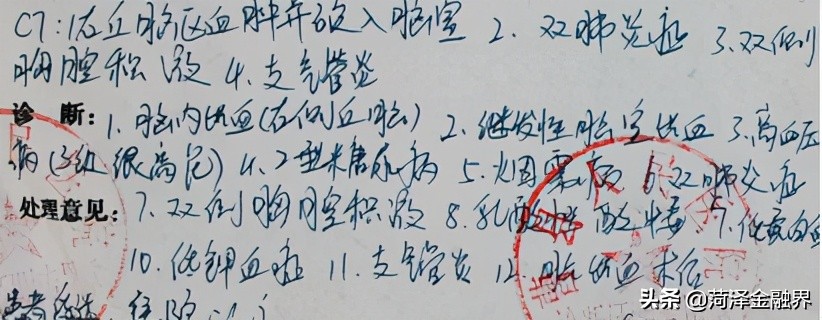 CT:1右丘脑区血肿并破入脑室 2. 双肺炎症 3.双侧
胸腔积液 4.支气管炎
诊 断: 1.脑内出血(右侧丘脑) 2.继发性脑室出血 3.高血压
病(3级 很高危) 4. 2型糖尿病 5.烟雾病 6.双肺炎症
处理意见: 7.双侧胸腔积液 8.乳酸性酸中毒 9.低蛋白血
10.低钾血症 11.支气管炎 12.脑出血术后
患者
头条 @菏泽金融界